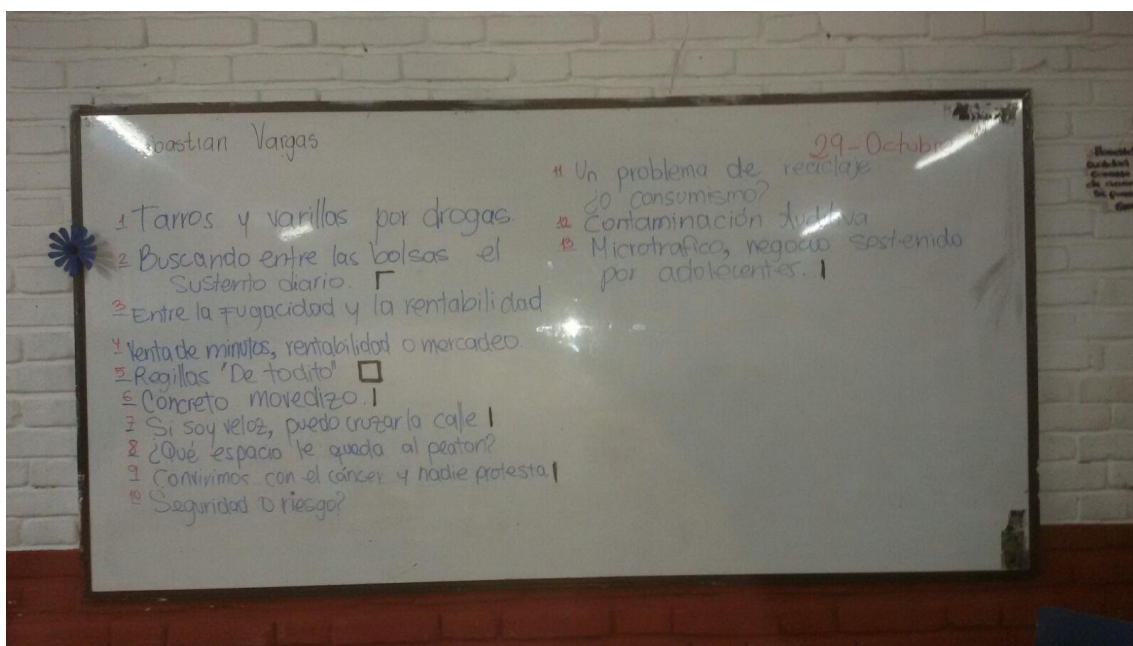 bastian Vargas
29-Octubre
1 Tarros y varillas por drogas.
2 Buscando entre las bolsas el
sustento diario.
3 Entre la Fugacidad y la rentabilidad
4 Venta de minutos, rentabilidad o mercadeo.
5 Regillas "De todito"
6 Concreto movedizo.
7 Si soy veloz, puedo cruzar la calle
8 ¿Qué espacio le queda al peaton?
9 Convivimos con el cáncer y nadie protesta
10 Seguridad o riesgo?
11 Un problema de reciclaje
¿o consumismo?
12 Contaminación Auditiva
13 Microtrafico, negocio sostenido
por adolecentes.